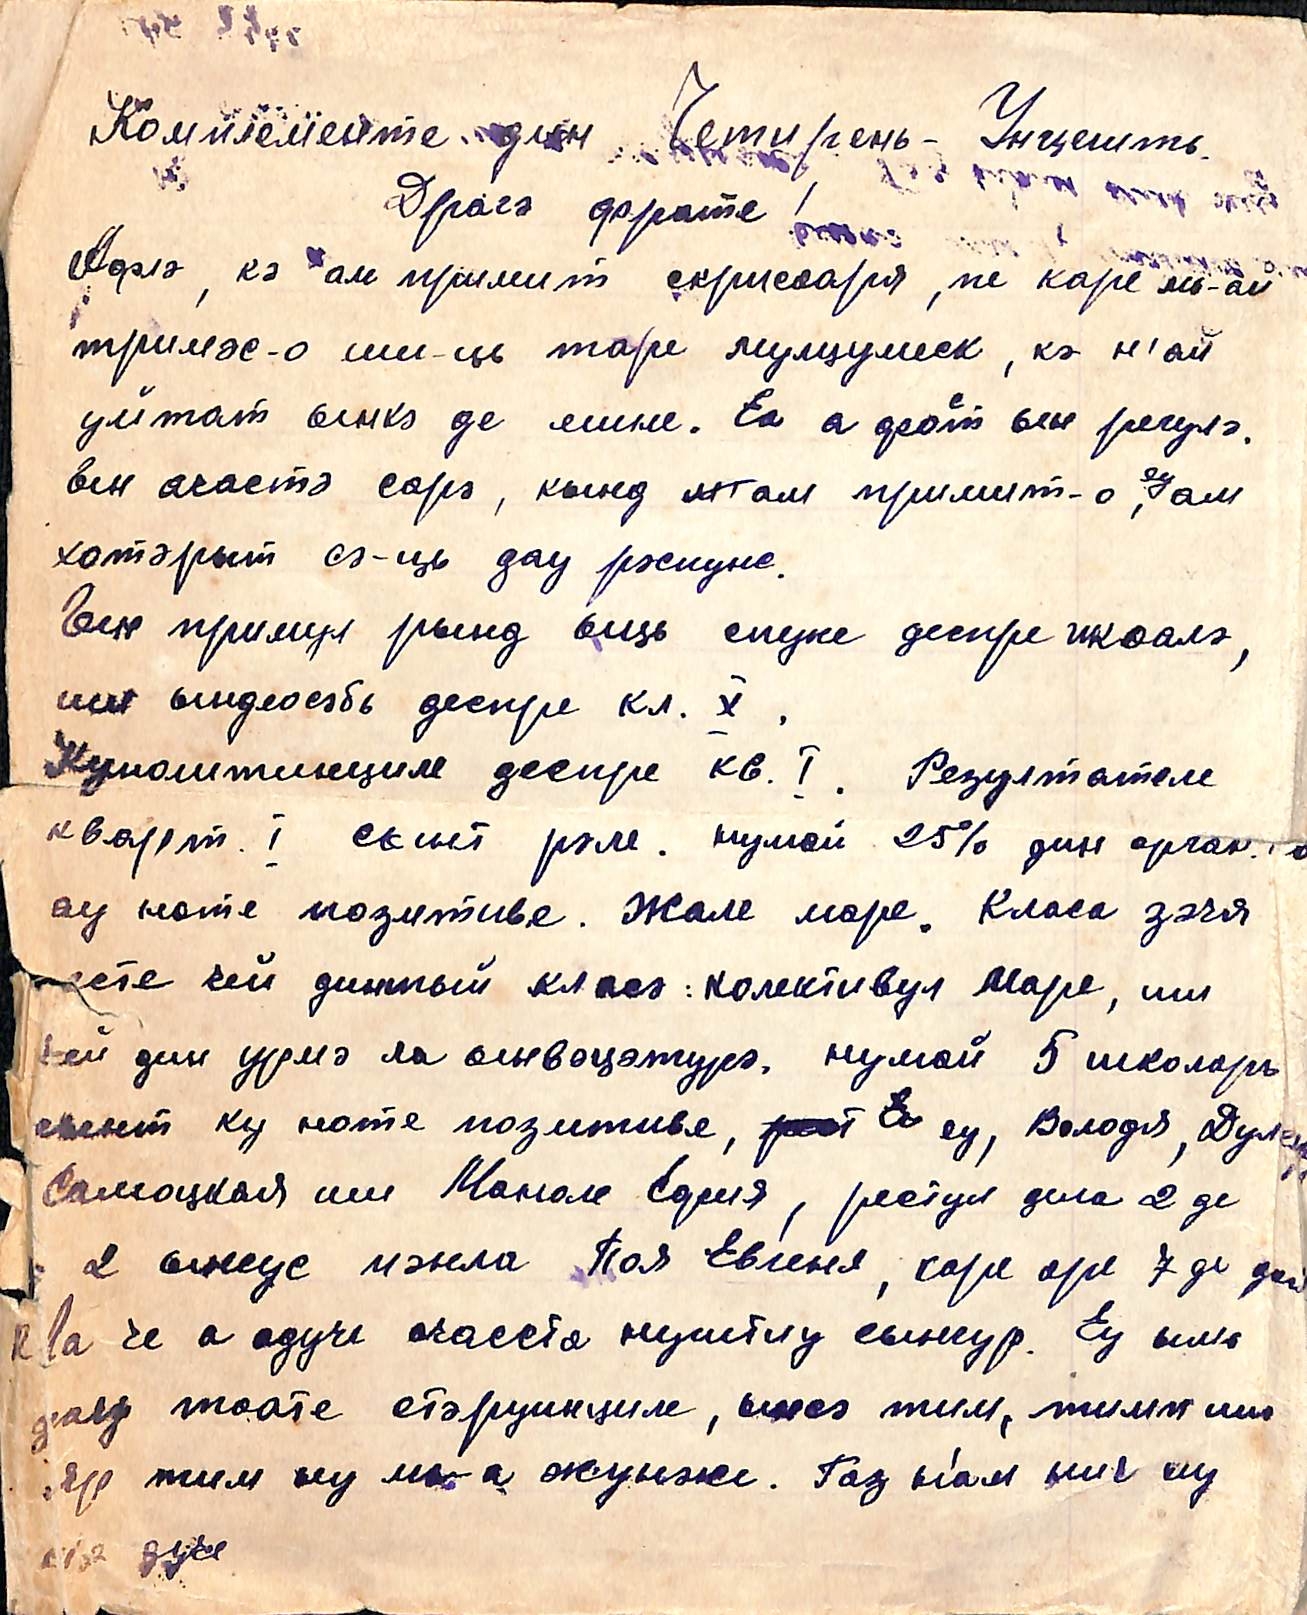 Комплементе дин Четирень - Унцешть.
Драгэ фрате!
Афлэ, кэ ам примит скрисоаря, пе каре мь-ай
тримэс-о ши-ць таре мулцумеск, кэ н'ай
уйтат ынкэ де мине. Еа а фост ын регулэ.
Ын ачастэ сарэ, кынд ам примит-о, еу ам
хотэрыт сэ-ць дау рэспунс.
Ын примул рынд ыць спуне деспре шкоалэ,
ши ындеосэбь деспре кл. X.
Куноштинциле деспре кв. I. Резултателе
кварт. I сынт рэле. нумай 25% дин орган.
ау ноте позитиве. Жале маре. Класа зэчя
есте чей динтый класэ: колективул Маре, ши
чей дин урмэ ла ынвэцэтурэ. нумай 5 школарь
сынт ку ноте позитиве, еу, Володя, Дул
Самоцкая ши Маноле Ефия, рестул дела 2 де
2 ынжус пэнла Поя Евгения, каре аре 7 де дой
ла че а адуче ачастэ нуштиу сынгур. Еу ымь
дау тоате стэруинциле, ынсэ тим, тимп ши
яр тим ну мь-а жунже. Газ н'ам нич ну
се адуче